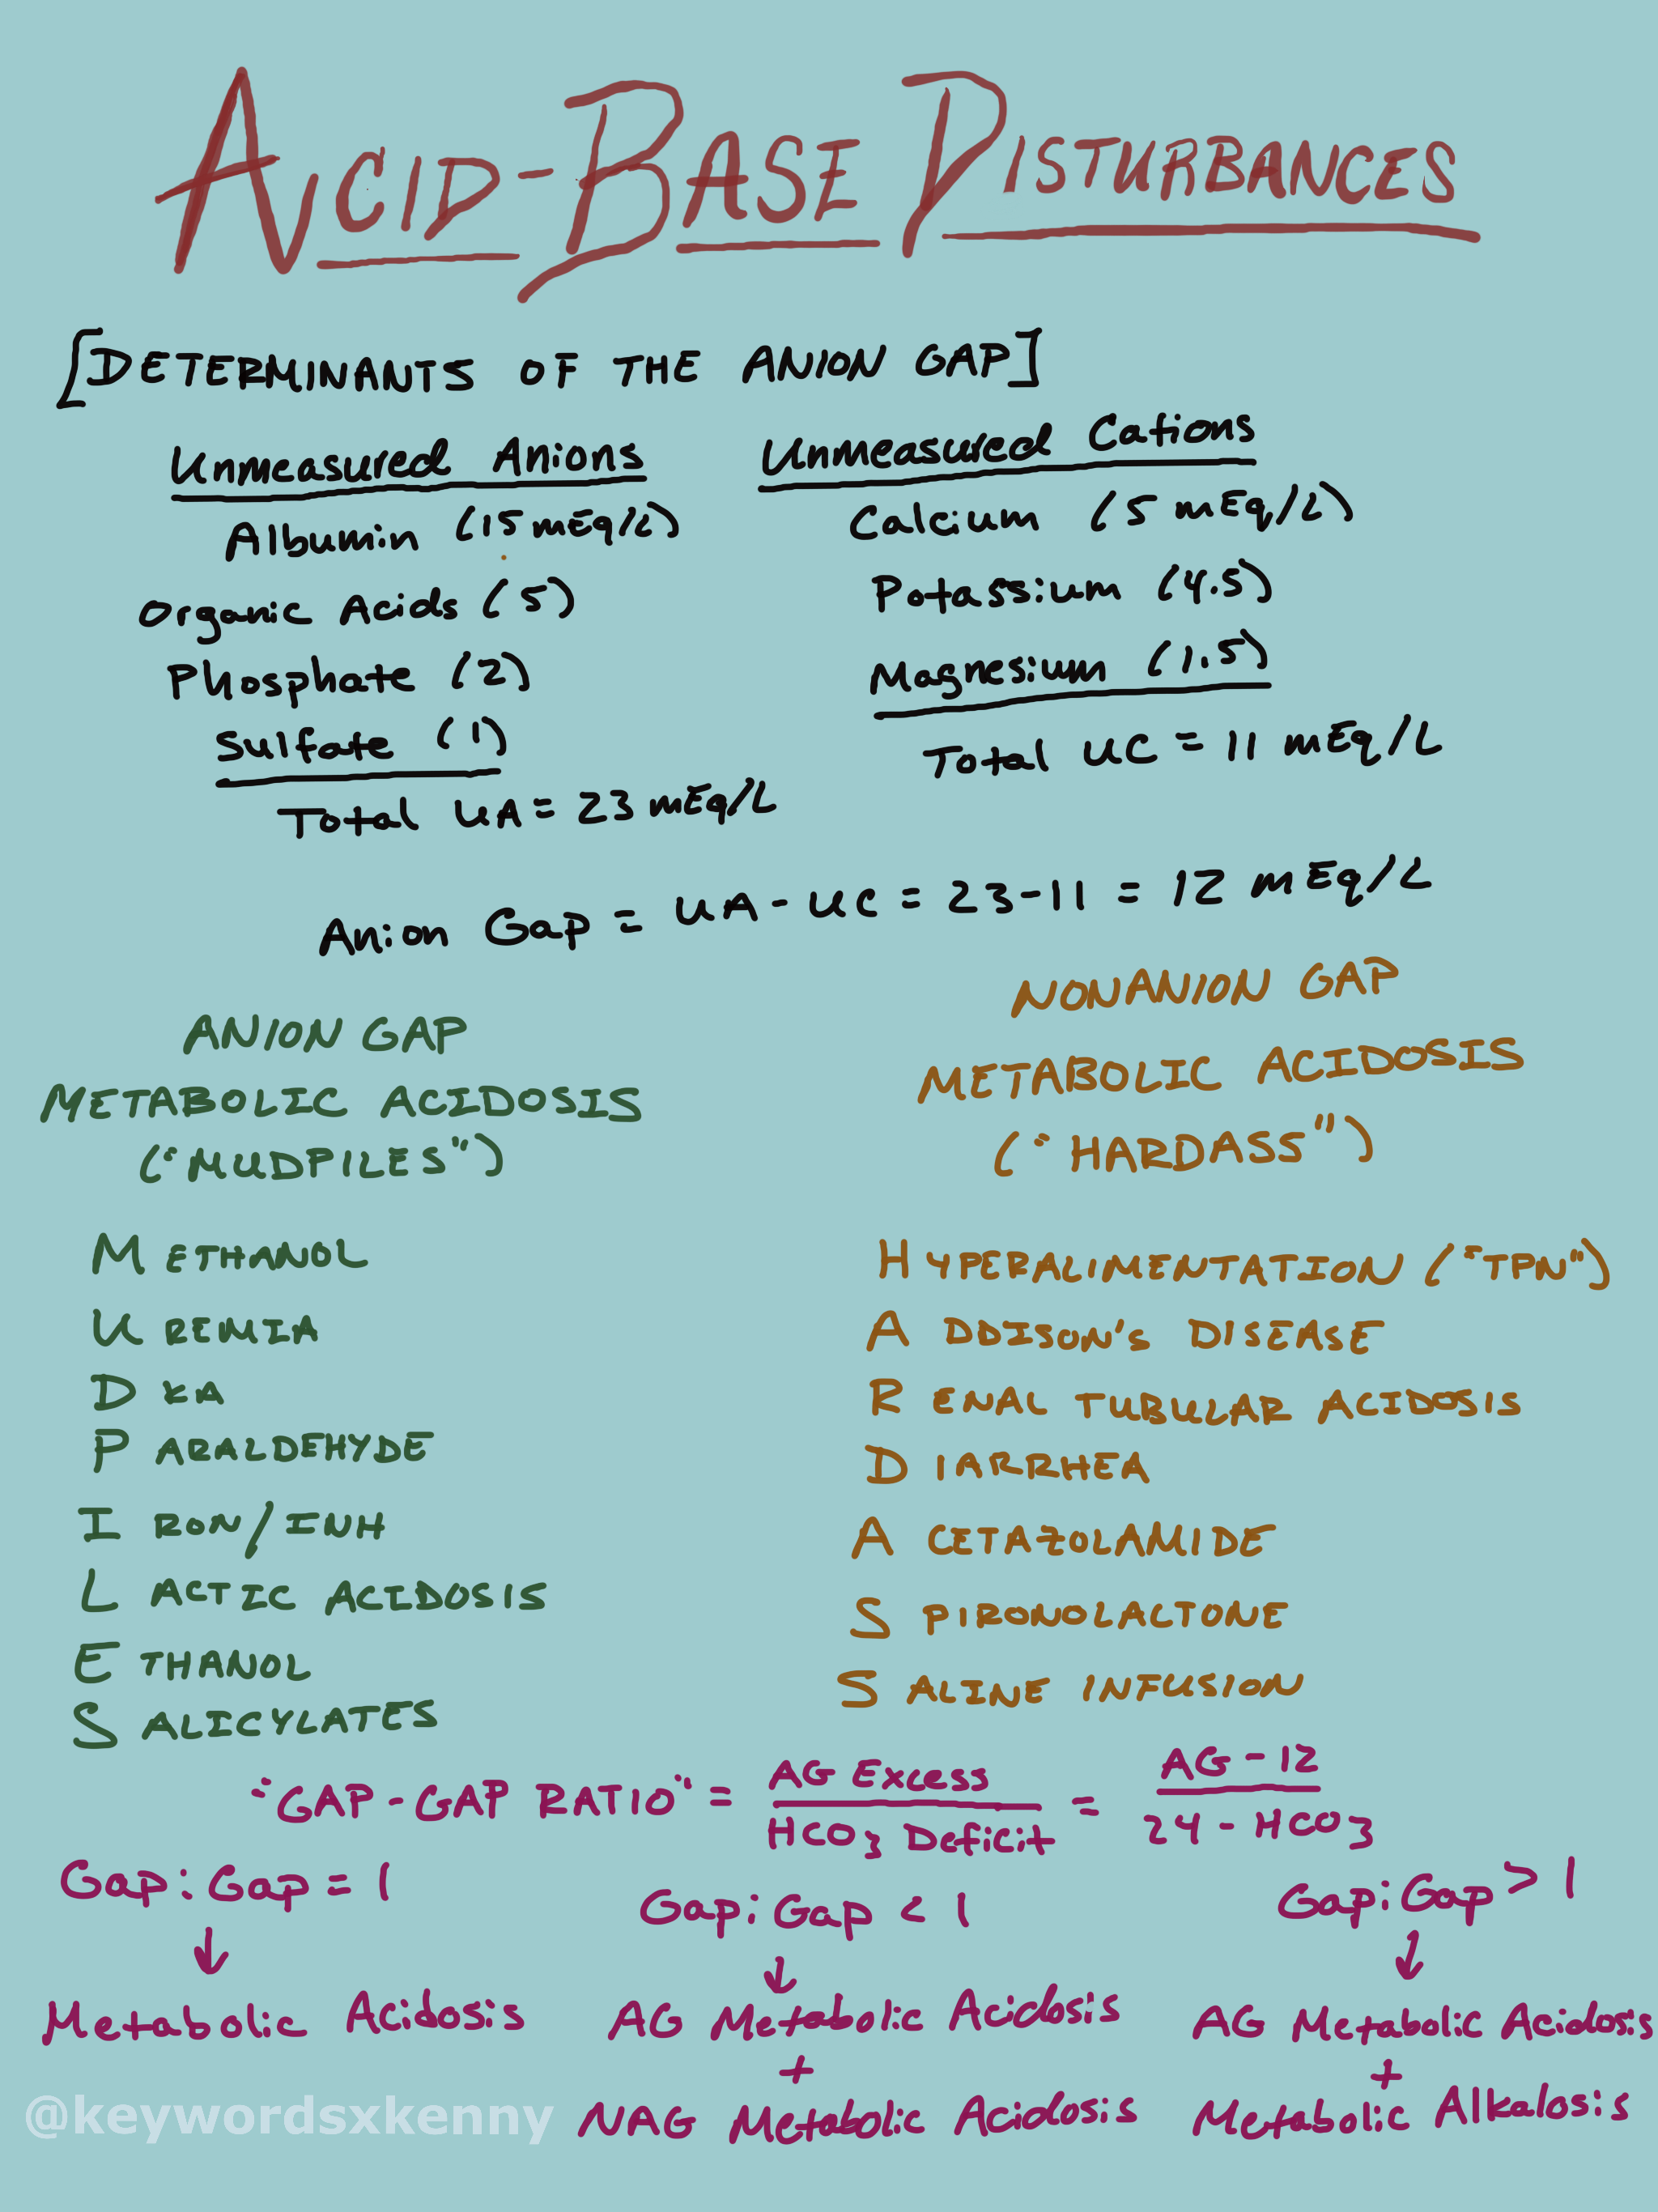 ACID-BASE DISTURBANCES
[DETERMINANTS OF THE ANION GAP]
Unmeasured Anions
Albumin (15 mEq/L)
Organic Acids (5)
Phosphate (2)
Sulfate (1)
Total UA = 23 mEq/L
Unmeasured Cations
Calcium (5 mEq/L)
Potassium (4.5)
Magnesium (1.5)
Total UC = 11 mEq/L
Anion Gap = UA - UC = 23-11 = 12 mEq/L
ANION GAP
METABOLIC ACIDOSIS
("MUDPILES")
METHANOL
UREMIA
DKA
PARALDEHYDE
IRON/INH
LACTIC ACIDOSIS
ETHANOL
SALICYLATES
NONANION GAP
METABOLIC ACIDOSIS
("HARDASS")
HYPERALIMENTATION ("TPN")
ADDISON'S DISEASE
RENAL TUBULAR ACIDOSIS
DIARRHEA
ACETAZOLAMIDE
SPIRONOLACTONE
SALINE INFUSION
"GAP-GAP RATIO" = AG Excess / HCO3 Deficit = AG - 12 / 24 - HCO3
Gap:Gap = 1
↓
Metabolic Acidosis
Gap:Gap < 1
↓
AG Metabolic Acidosis
+
NAG Metabolic Acidosis
Gap:Gap > 1
↓
AG Metabolic Acidosis
+
Metabolic Alkalosis
@keywordsxkenny